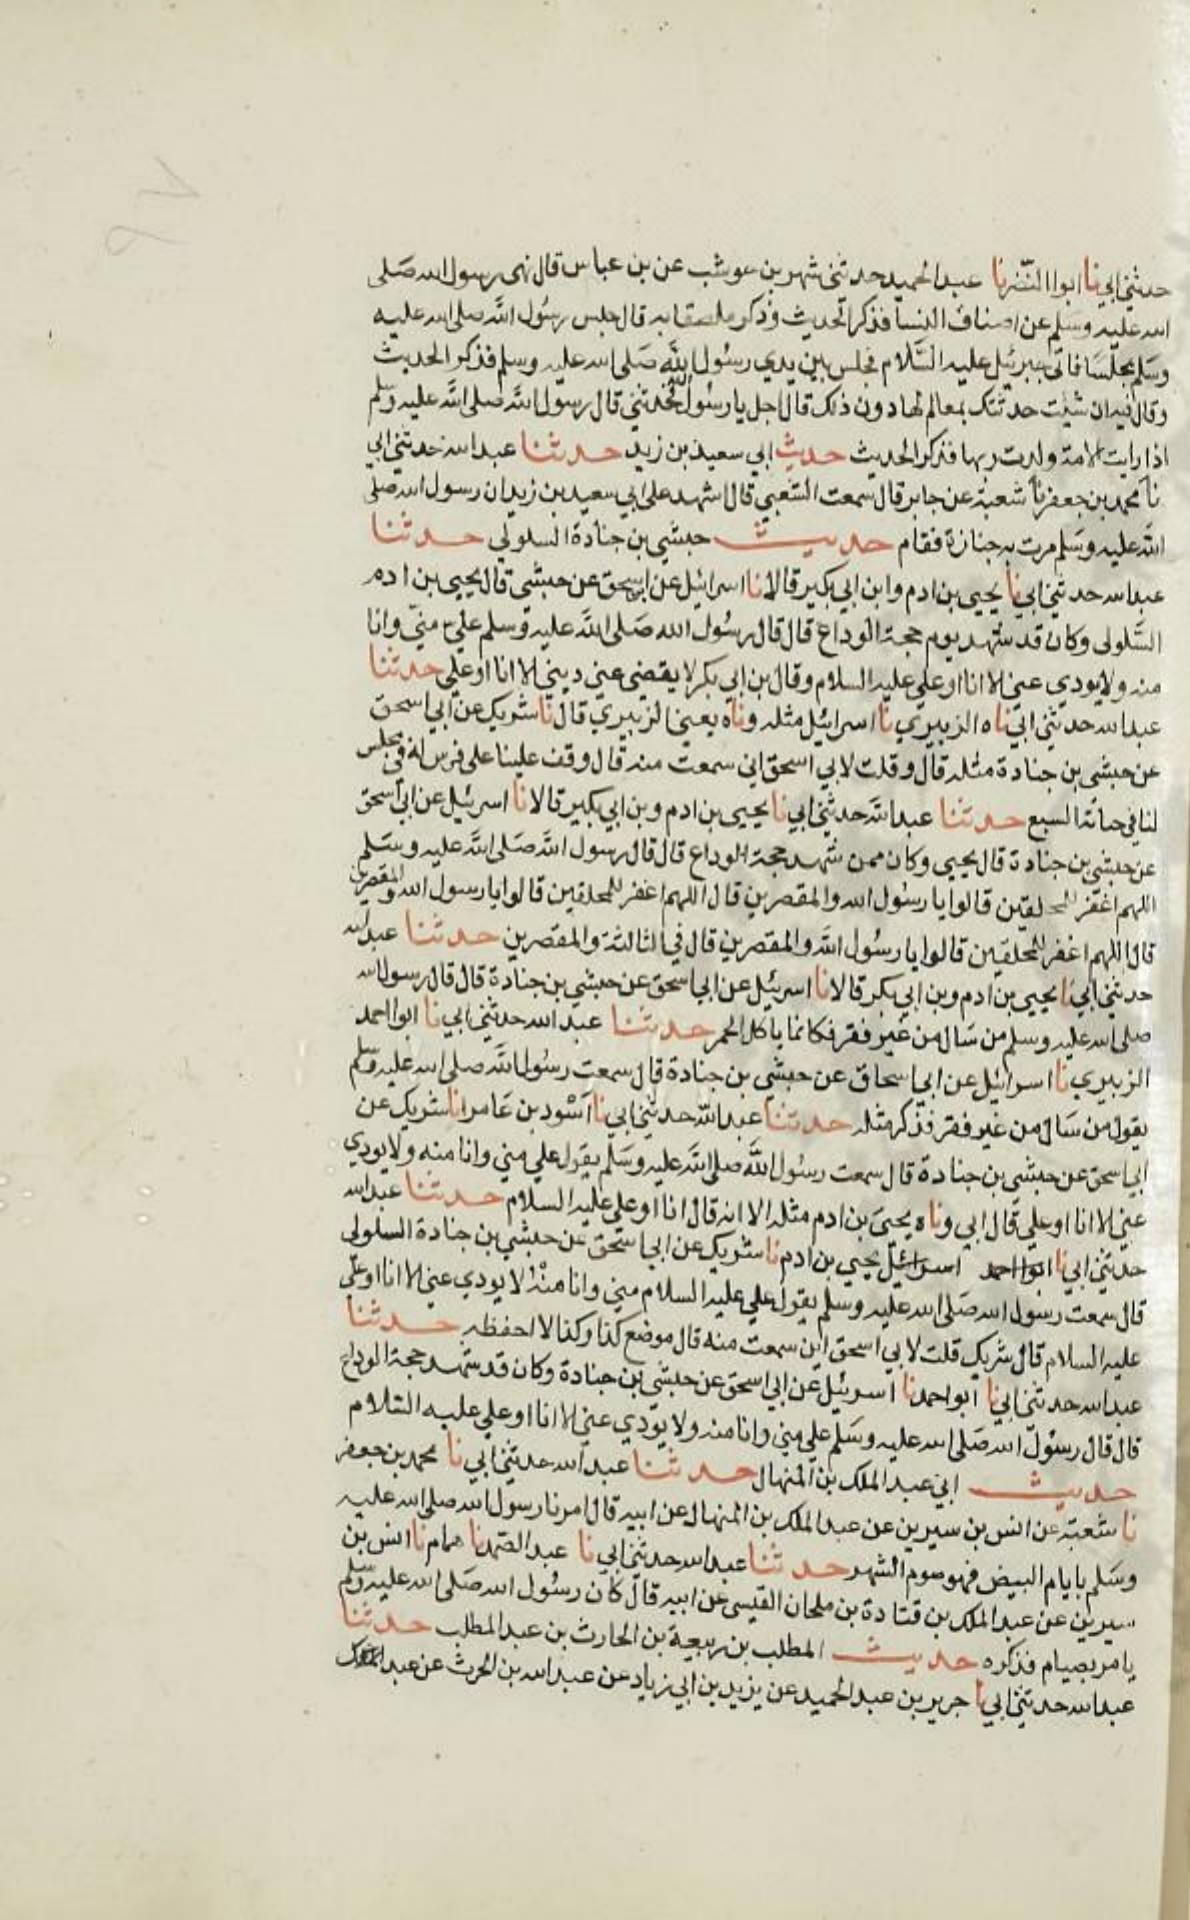 حدثني ابي نا ابوا النضر نا عبد الحميد حدثني شهر بن حوشب عن بن عباس قال نهى رسول الله صلى
الله عليه وسلم عن اصناف النسا فذكر الحديث وذكر ملصقا به قال جلس رسول الله صلى الله عليه
وسلم مجلسا فاتى جبرئيل عليه السلام فجلس بين يدي رسول الله صلى الله عليه وسلم فذكر الحديث
وقال فيه ان شئت حدثتك بمعالم لها دون ذلك قال اجل يا رسول الله فحدثني قال رسول الله صلى الله عليه وسلم
اذا رايت الامة ولدت ربها فذكر الحديث حديث ابي سعيد بن زيد حدثنا عبد الله حدثني ابي
نا محمد بن جعفر نا شعبة عن جابر قال سمعت الشعبي قال اشهد على ابي سعيد بن زيد ان رسول الله صلى
الله عليه وسلم مرت به جنازة فقام حديث حبشي بن جنادة السلولي حدثنا
عبد الله حدثني ابي نا يحيى بن ادم وابن ابي بكير قالا نا اسرائيل عن ابي اسحق عن حبشي قال يحيى بن ادم
السلولى وكان قد شهد يوم حجة الوداع قال قال رسول الله صلى الله عليه وسلم علي مني وانا
منه ولا يودي عني الا انا او علي عليه السلام وقال بن ابي بكر لا يقضي عني ديني الا انا او علي حدثنا
عبد الله حدثني ابي ناه الزبيري نا اسرائيل مثله وناه يعني الزبيري قال نا شريك عن ابي اسحق
عن حبشي بن جنادة مثله قال وقلت لابي اسحق اني سمعت منه قال وقف علينا على فرس له في مجلس
لنا في جبانة السبع حدثنا عبد الله حدثني ابي نا يحيى بن ادم وبن ابي بكير قالا نا اسرئيل عن ابي اسحق
عن حبشي بن جنادة قال يحيى وكان ممن شهد حجة الوداع قال قال رسول الله صلى الله عليه وسلم
اللهم اغفر للمحلقين قالوا يا رسول الله والمقصرين قال اللهم اغفر للمحلقين قالوا يا رسول الله والمقصرين
قال اللهم اغفر للمحلقين قالوا يا رسول الله والمقصرين قال في الثالثة والمقصرين حدثنا عبد الله
حدثني ابي نا يحيى بن ادم وبن ابي بكر قالا نا اسرئيل عن ابي اسحق عن حبشي بن جنادة قال قال رسول الله
صلى الله عليه وسلم من سال من غير فقر فكانما ياكل الجمر حدثنا عبد الله حدثني ابي نا ابوا احمد
الزبيري نا اسرائيل عن ابي اسحاق عن حبشي بن جنادة قال سمعت رسول الله صلى الله عليه وسلم
يقول من سال من غير فقر فذكر مثله حدثنا عبد الله حدثني ابي نا اسود بن عامر انا شريك عن
ابي اسحق عن حبشي بن جنادة قال سمعت رسول الله صلى الله عليه وسلم يقول علي مني وانا منه ولا يودي
عني الا انا او علي قال ابي وناه يحيى بن ادم مثله الا انه قال انا او علي عليه السلام حدثنا عبد الله
حدثني ابي نا ابوا احمد اسرائيل يحيى بن ادم نا شريك عن ابي اسحق عن حبشي بن جنادة السلولى
قال سمعت رسول الله صلى الله عليه وسلم يقول علي عليه السلام مني وانا منه لا يودي عني الا انا او علي
عليه السلام قال شريك قلت لابي اسحق اين سمعت منه قال موضع كذا وكذا لا احفظه حدثنا
عبد الله حدثني ابي نا ابو احمد نا اسرئيل عن ابي اسحق عن حبشي بن جنادة وكان قد شهد حجة الوداع
قال قال رسول الله صلى الله عليه وسلم علي مني وانا منه ولا يودي عني الا انا او علي عليه السلام
حديث ابي عبد الملك بن المنهال حدثنا عبد الله حدثني ابي نا محمد بن جعفر
نا شعبة عن انس بن سيرين عن عبد الملك بن المنهال عن ابيه قال امرنا رسول الله صلى الله عليه
وسلم بايام البيض فهو صوم الشهر حدثنا عبد الله حدثني ابي نا عبد الصمد نا همام نا انس بن
سيرين عن عبد الملك بن قتادة بن ملحان القيسى عن ابيه قال كان رسول الله صلى الله عليه وسلم
يامر بصيام فذكره حديث المطلب بن ربيعة بن الحارث بن عبد المطلب حدثنا
عبد الله حدثني ابي نا جرير بن عبد الحميد عن يزيد بن ابي زياد عن عبد الله بن الحرث عن عبد